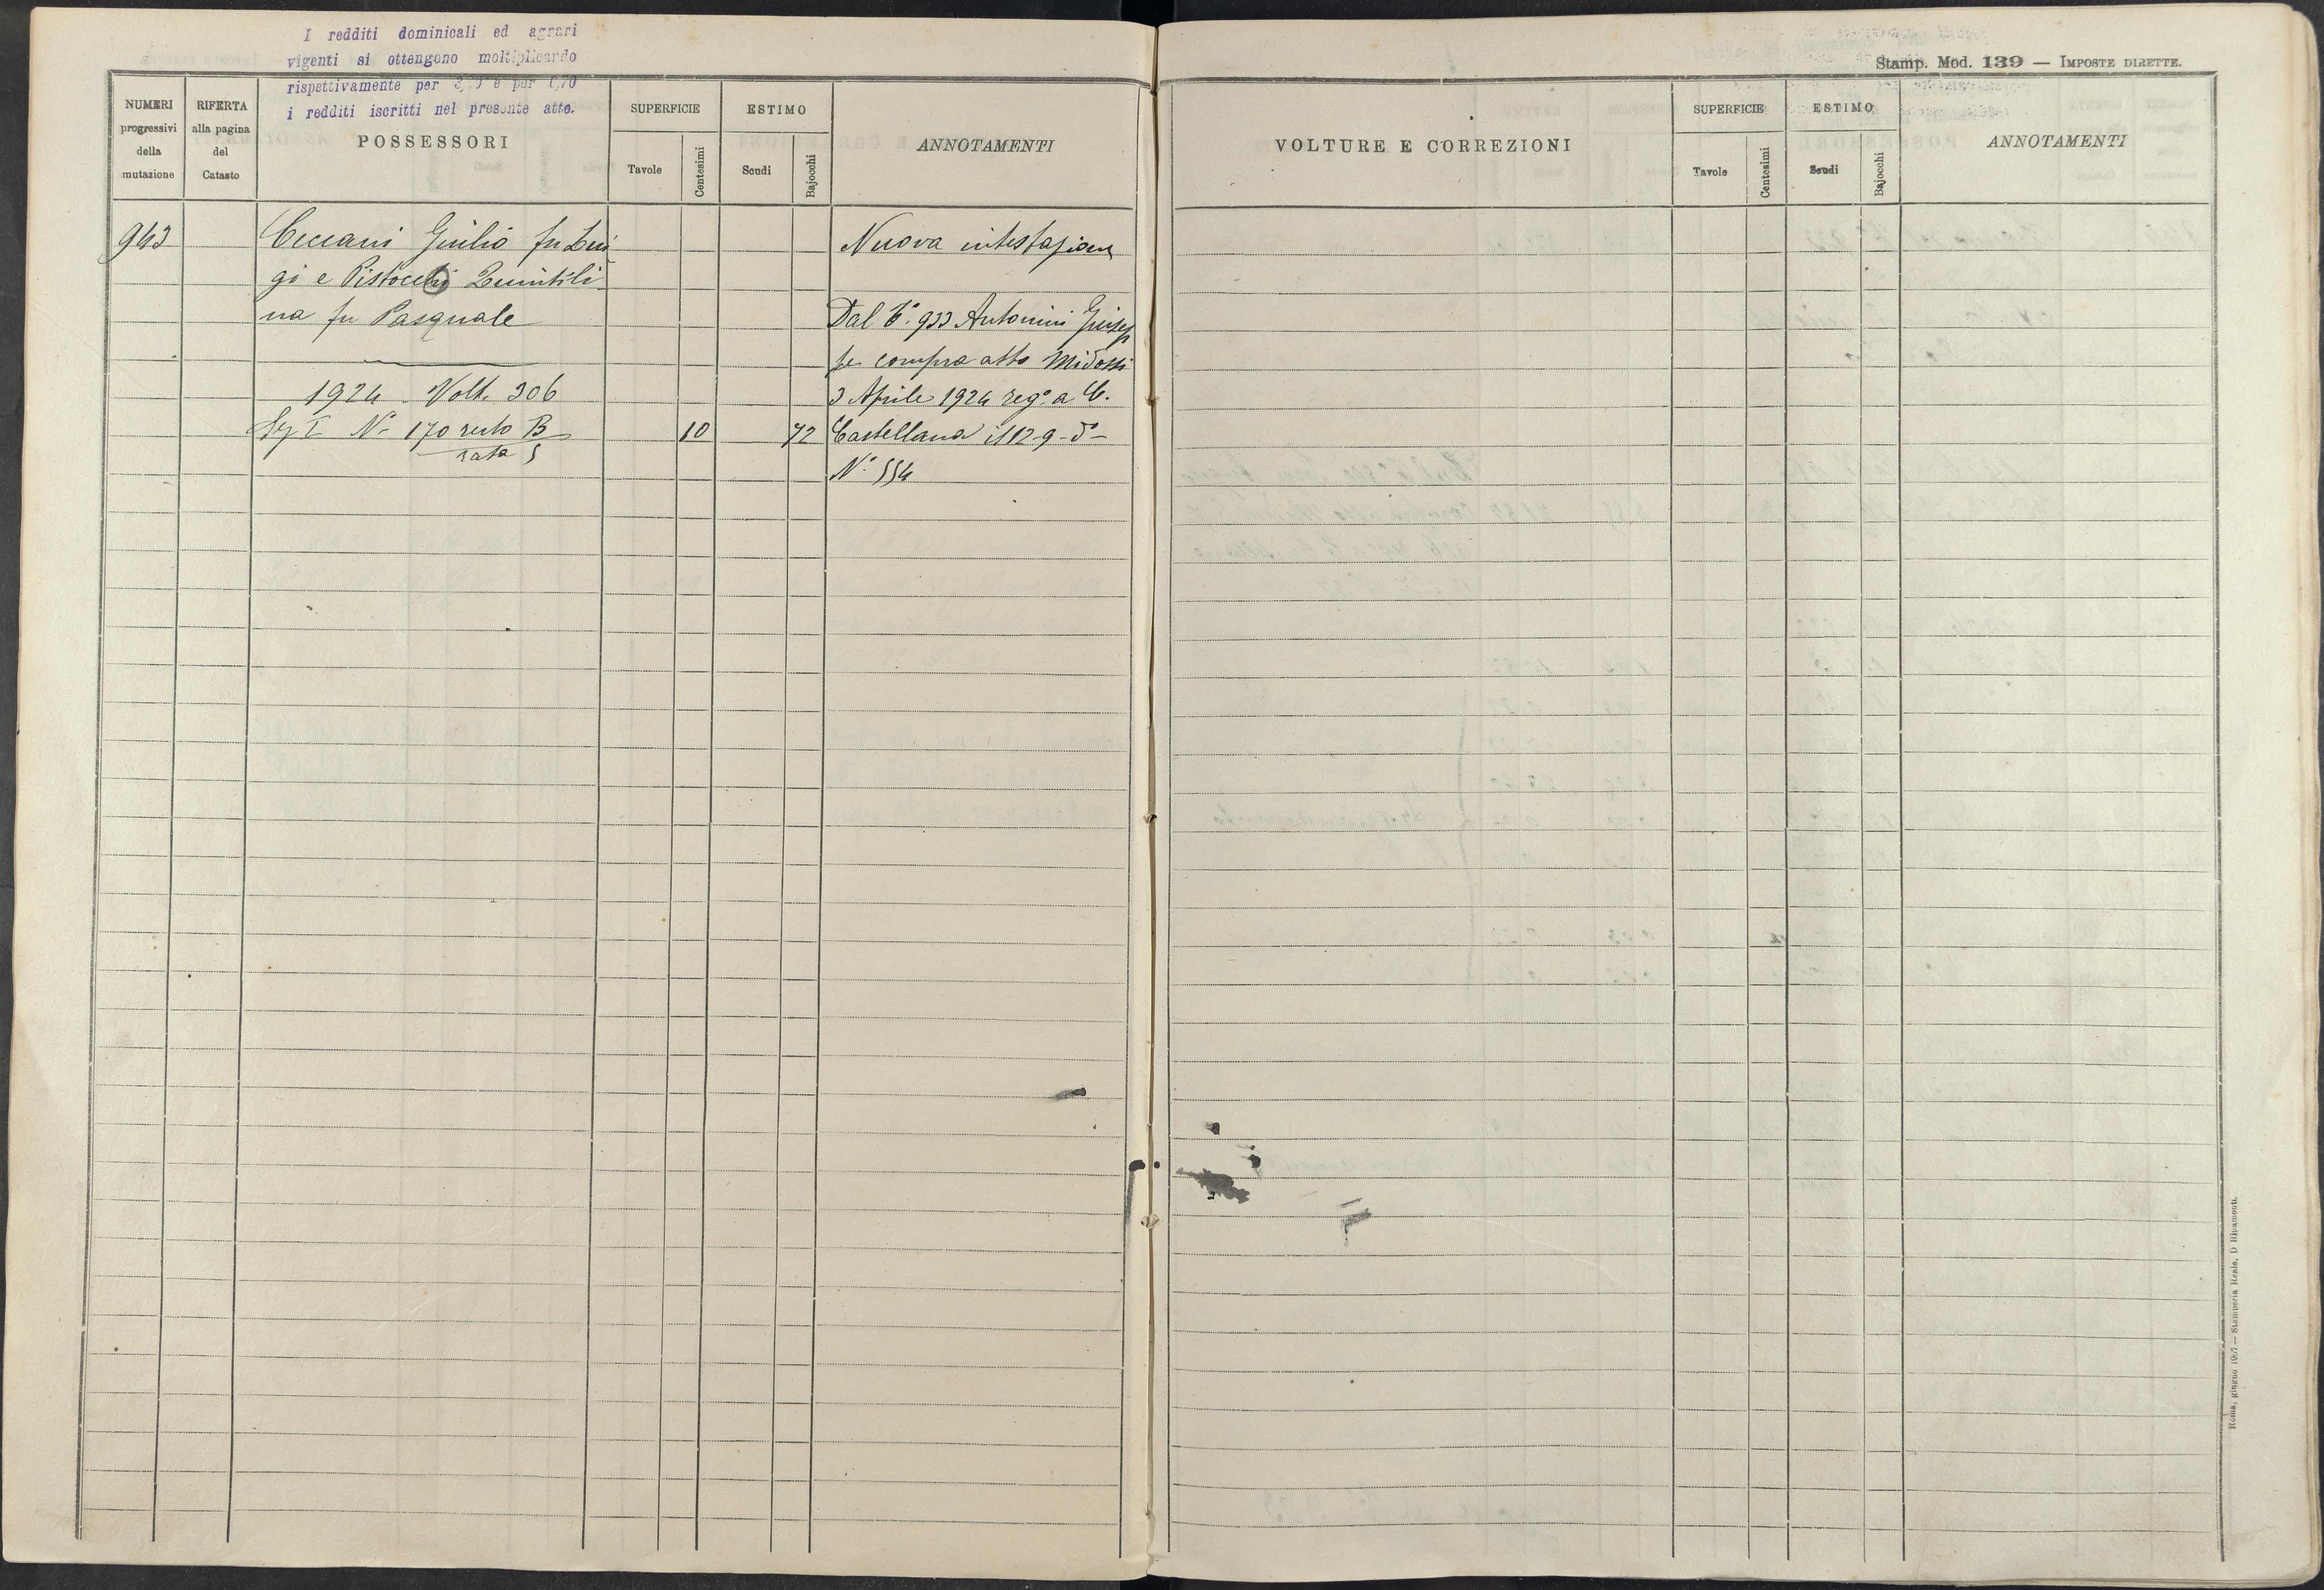 I redditi dominicali ed agrari
vigenti si ottengono moltiplicando
rispettivamente per e per 0,70
i redditi iscritti nel presente atto.
NUMERI progressivi della mutazione
RIFERTA alla pagina del Catasto
POSSESSORI
SUPERFICIE
Tavole
Centesimi
ESTIMO
Scudi
Bajocchi
ANNOTAMENTI
943
Ceccani Giulio fu Lui
gi e Pistocchi Quintili
na fu Pasquale
1924 Volt. 306
Sez I N° 170 resto B
rata 5
10
72
Nuova intestazione
Dal C. 933 Antonini Giusep
pe compra atto Midossi
3 Aprile 1924 reg° a C.
Castellana il 12-9-
N° 554
Stamp. Mod. 139 — IMPOSTE DIRETTE.
VOLTURE E CORREZIONI
SUPERFICIE
Tavole
Centesimi
ESTIMO
Scudi
Bajocchi
ANNOTAMENTI
Roma, giugno 1907 — Stamperia Reale, D. Ripamonti.